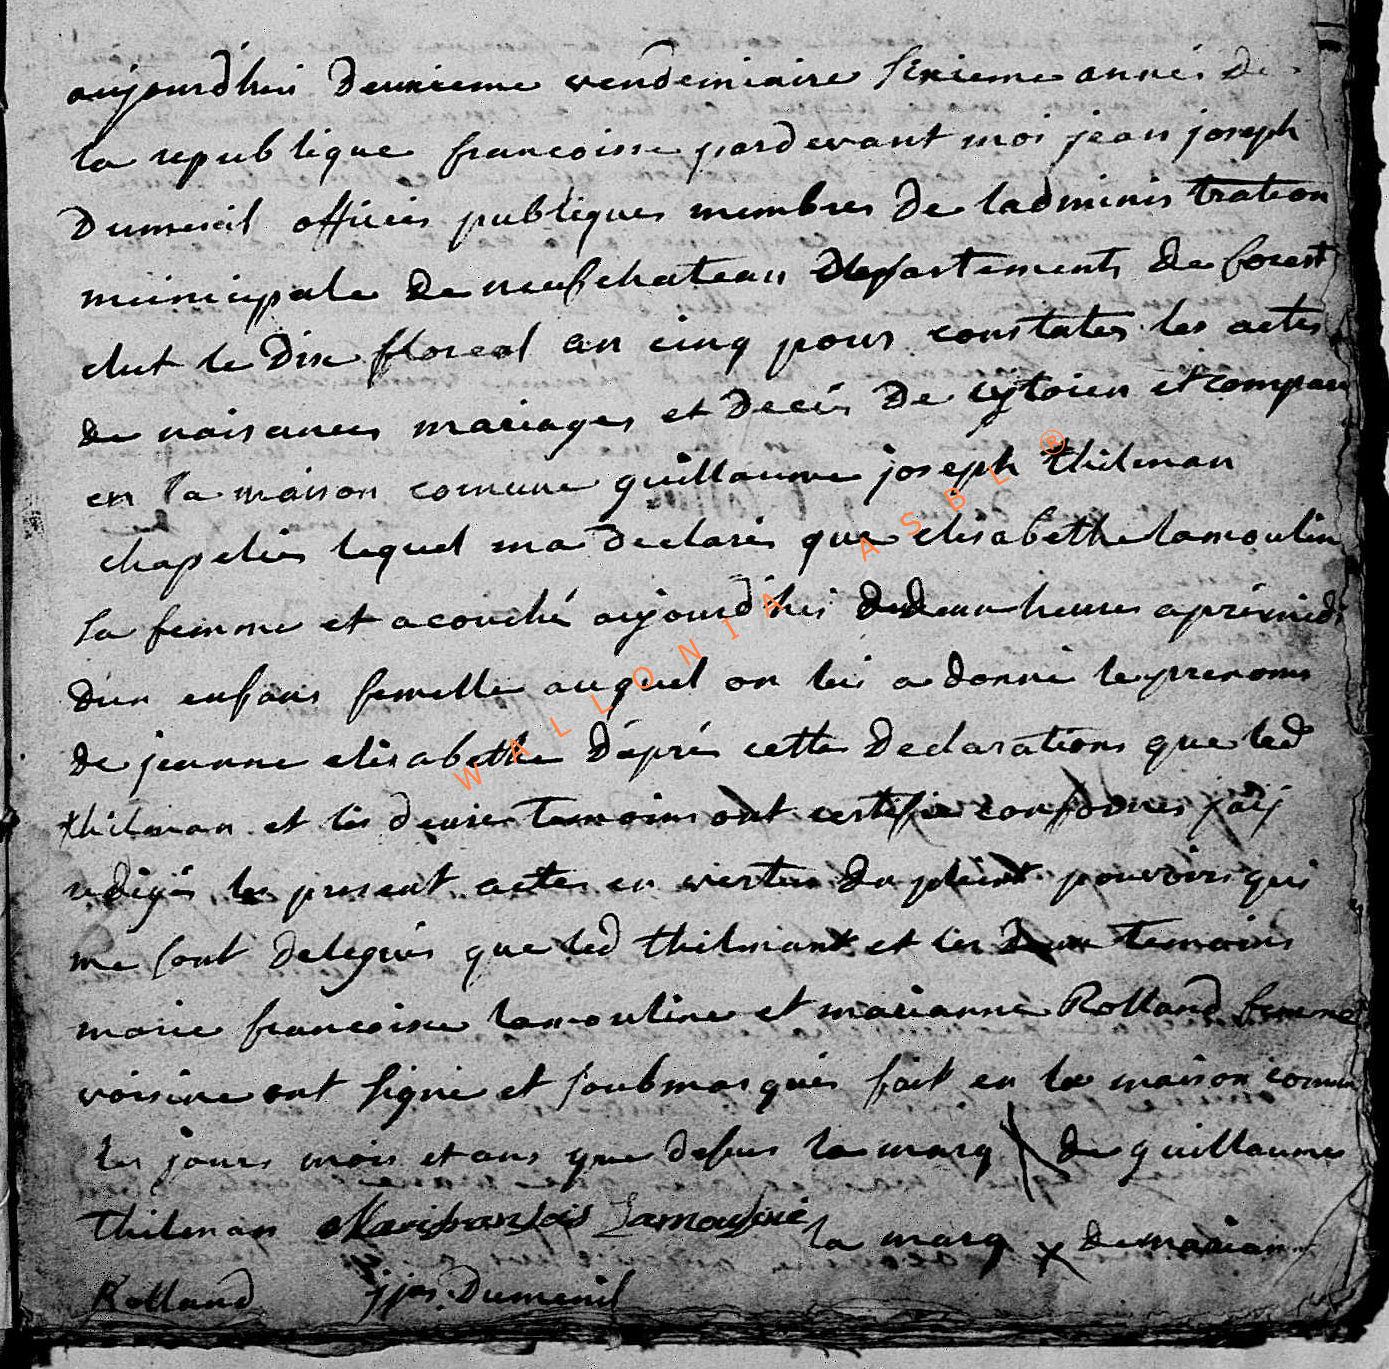 aujourd'hui deuxieme vendemiaire sixieme anneé de
la republique francoise pardevant moi jean joseph
dumenil officier publique membres de ladministration
municipale de neufchateau departements de forest
elut le dix floreal an cinq pour constater les actes
de naisances mariages et deces de cytoien et comparu
en la maison comune guillaume joseph thilman
chapelier lequel ma declarer que elisabethe lamouline
sa femme et acouché aujourd'hui deux heures aprémidi
d'un enfans femelle auquel on lui a donné le prenoms
de jeanne elisabethe d'apré cette declarations que led
thilman et les deuxe temoins ont certifie conforme j'aij
redigés le present actes en vertu du pleint pouvoirs qui
me sont delegués que led thilmant et les deux temoins
marie francoise lamouline et marianne Rolland femme
voisine ont signé et soubmarqués fait en la maison comune
les jours mois et ans que desus la marq X de guillaume
thilman Marifransois Lamouline la marq x de mariann
Rolland jjos Dumenil
WALLONIA ASBL ®